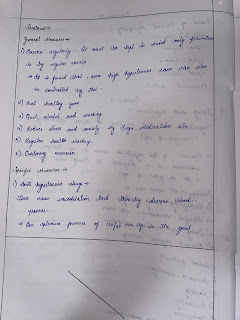 Treatment
General Measures →
1) Exercise regularly. It must be kept in mind only
is by regular exercise
→ It is found that, even high hypertension can also
be controlled by this.
2) Eat healthy food
3) Quit alcohol and smoking
4) Reduce stress and anxiety by Yoga, Medication etc.
5) Regular health checkup.
6) Breathing exercises
Specific Measures →
1) Anti hypertensive drugs →
These cause vasodilation and thereby decrease blood
pressure.
→ pressure of 120/80 mm Hg is the goal